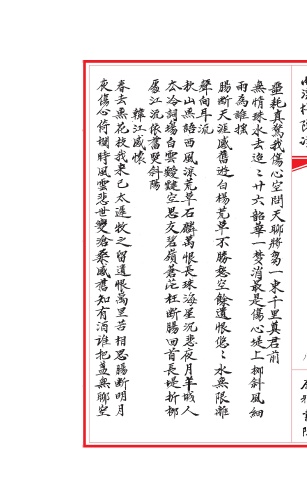 噩耗真驚我傷心空問天聊將芻一束千里莫君前
無情珠水去迢迢廿六韶華一梦消最是傷心堤上柳斜風細
雨為誰搖
腸斷天涯感舊遊白楊荒草不勝愁空餘遺恨悠悠水無限離
聲向耳流
秋山無語西風涼荒草石麟萬恨長珠海星沉悲夜月羊城人
去冷詞場白雲靉靆空思友碧嶺蒼茫枉断腸回首長堤折柳
處江流依舊雙斜陽
韓江感懷
春去無花枝我來已太遲牧之留遺恨萬里苦相思腸斷明月
夜傷心倚欄時風雲悲世變滄桑感舊知有酒誰把盞無聊空